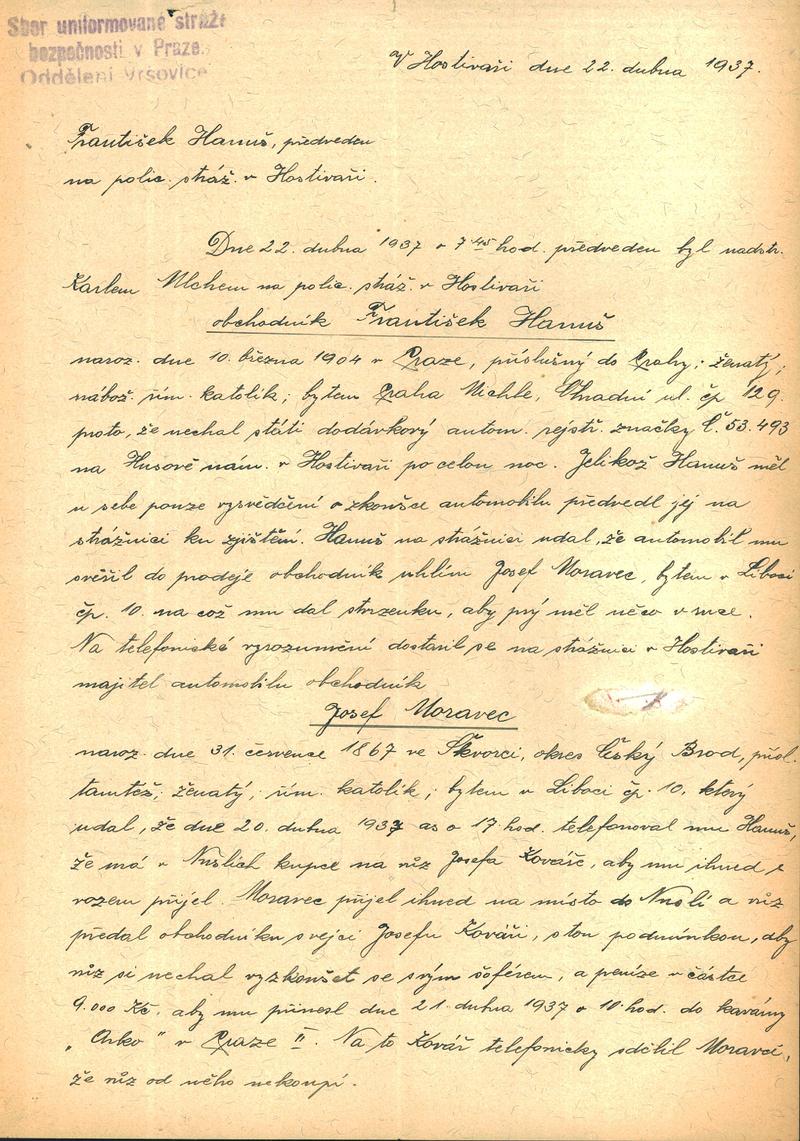 Sbor uniformované stráže
bezpečnosti v Praze.
Oddělení Vršovice
V Hostivaři dne 22. dubna 1937.
František Hanuš, předveden
na polic. stráž. v Hostivaři.
Dne 22. dubna 1937 v 7 45 hod. předveden byl nadstr.
Karlem Ulchem na polic. stráž. v Hostivaři
obchodník František Hanuš
naroz. dne 10. března 1904 v Praze, příslušný do Prahy; ženatý;
nábož. řím. katolík; bytem Praha Michle, Ohradní ul. čp 129.
proto, že nechal státi dodávkový autom. rejstř. značky Č. 53.493
na Husově nám. v Hostivaři po celou noc. Jelikož Hanuš měl
u sebe pouze vysvědčení o zkoušce automobilu předvedl jej na
strážnici ku zjištění. Hanuš na strážnici udal, že automobil mu
svěřil do prodeje obchodník uhlím Josef Moravec, bytem v Liboci
čp. 10. na což mu dal stvrzenku, aby prý měl něco v ruce.
Na telefonické vyrozumění dostavil se na strážnici v Hostivaři
majitel automobilu obchodník
Josef Moravec
naroz. dne 31. července 1867 ve Škvorci, okres Český Brod, přísl.
tamtéž; ženatý; řím. katolík; bytem v Liboci čp. 10. který
udal, že dne 20. dubna 1937 as o 17 hod. telefonoval mu Hanuš,
že má v Nuslích kupce na vůz Josefa Kováře, aby mu ihned s
vozem přijel. Moravec přijel ihned na místo do Nuslí a vůz
předal obchodníku s vejci Josefu Kováři, s tou podmínkou, aby
vůz si nechal vyzkoušet se svým šoférem, a peníze v částce
9.000 Kč, aby mu přinesl dne 21. dubna 1937 v 10 hod. do kavárny
„Arko" v Praze II. Na to Kovář telefonicky sdělil Moravci,
že vůz od něho nekoupí.